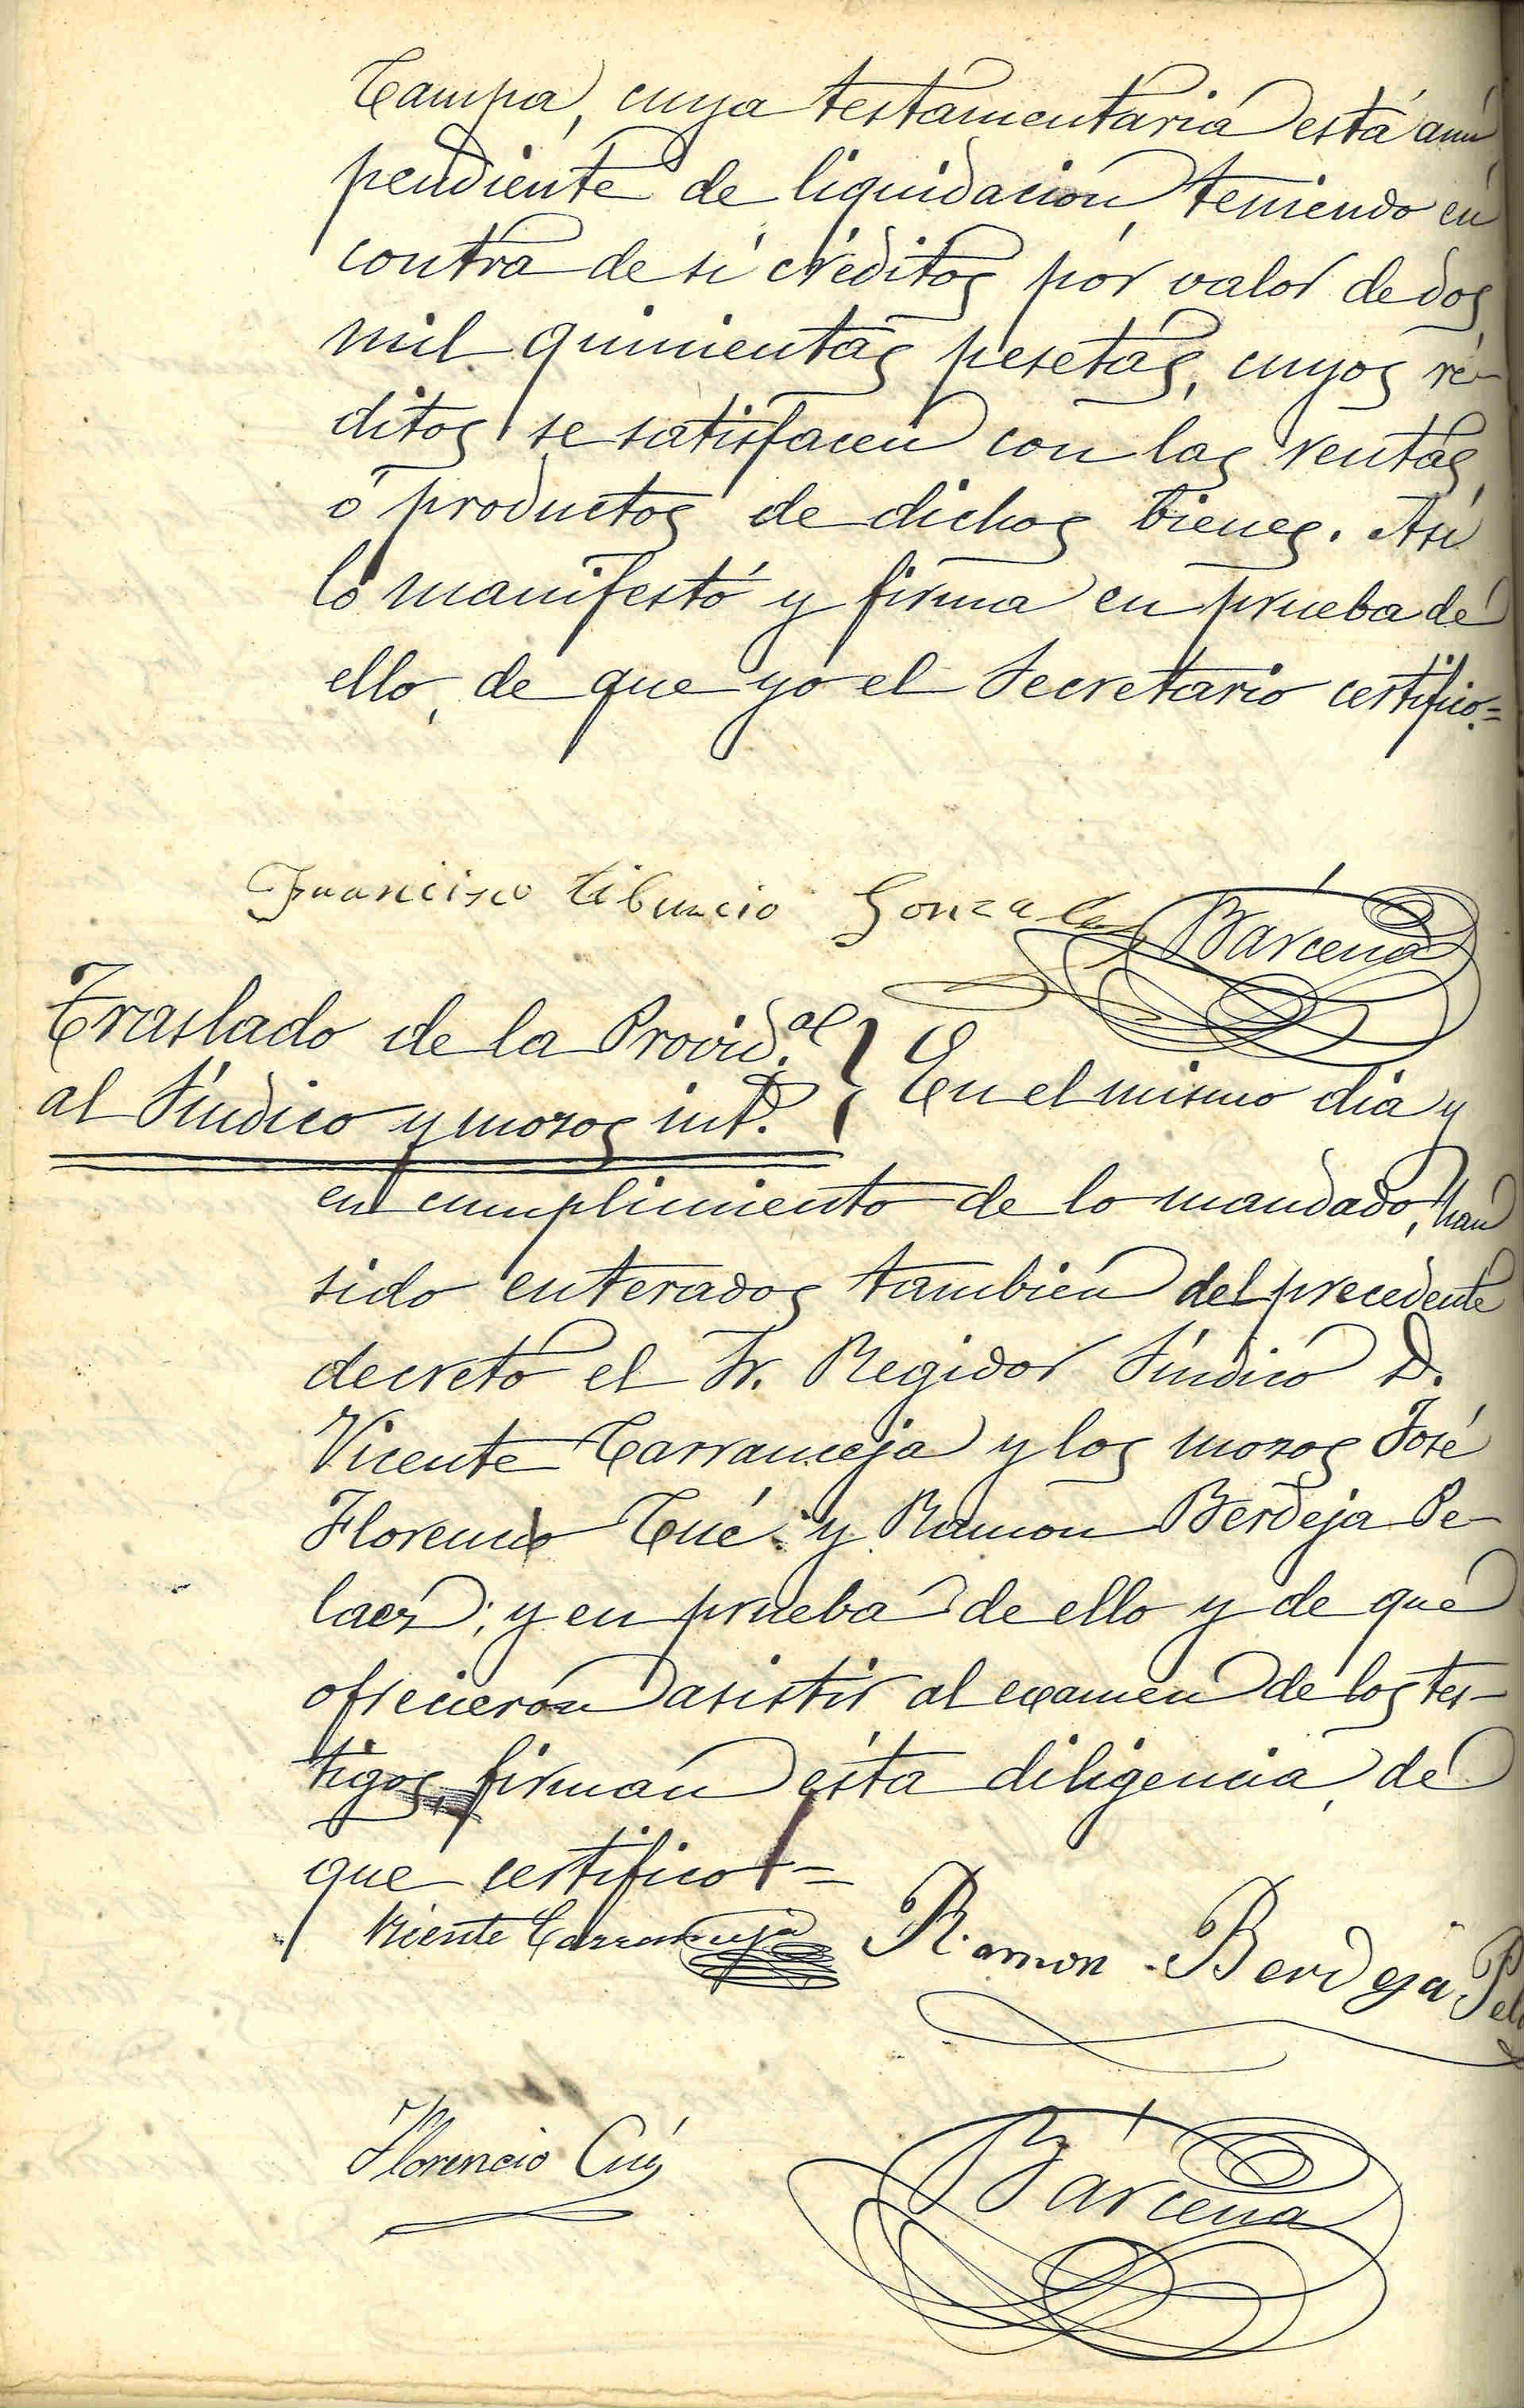 Campa, cuya testamentaria está aun
pendiente de liquidacion, teniendo en
contra de sí créditos por valor de dos
mil quinientas pesetas, cuyos ré-
ditos se satisfacen con las rentas
ó productos de dichos bienes. Así
lo manifestó y firma en prueba de
ello, de que yo el Secretario certifico.=
Francisco Tiburcio Gonzalez
Bárcena
Traslado de la Provid.al
al Síndico y mozos int.s
En el mismo dia y
en cumplimiento de lo mandado, han
sido enterados tambien del precedente
decreto el Sr. Regidor Síndico D.
Vicente Carranceja y los mozos José
Florencio Cué y Ramon Berdeja Pe-
laez; y en prueba de ello y de que
ofrecieron asistir al examen de los tes-
tigos, firman ésta diligencia, de
que certifico=
Vicente Carranceja
Ramon Berdeja Pela
Florencio Cué
Bárcena